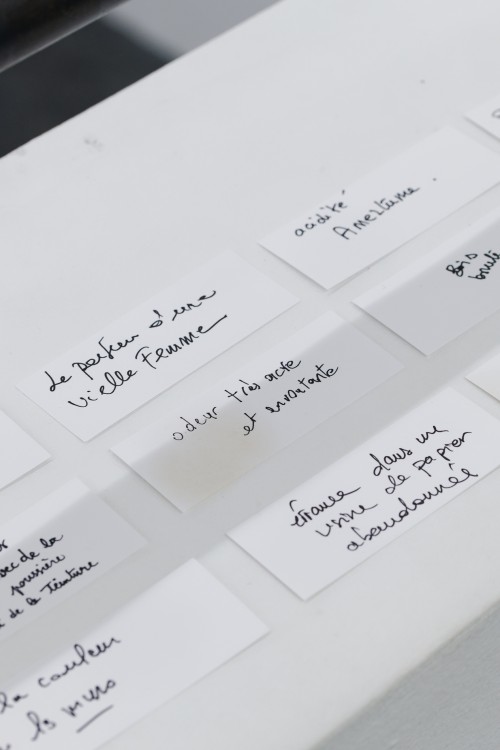 acidité
Amertume.
Bois
brulé
Le parfum d'une
vielle Femme
odeur très acre
et envoutante
dans une
usine de papier
abandonnée
avec de la
poussière
de la Teinture
la couleur
murs